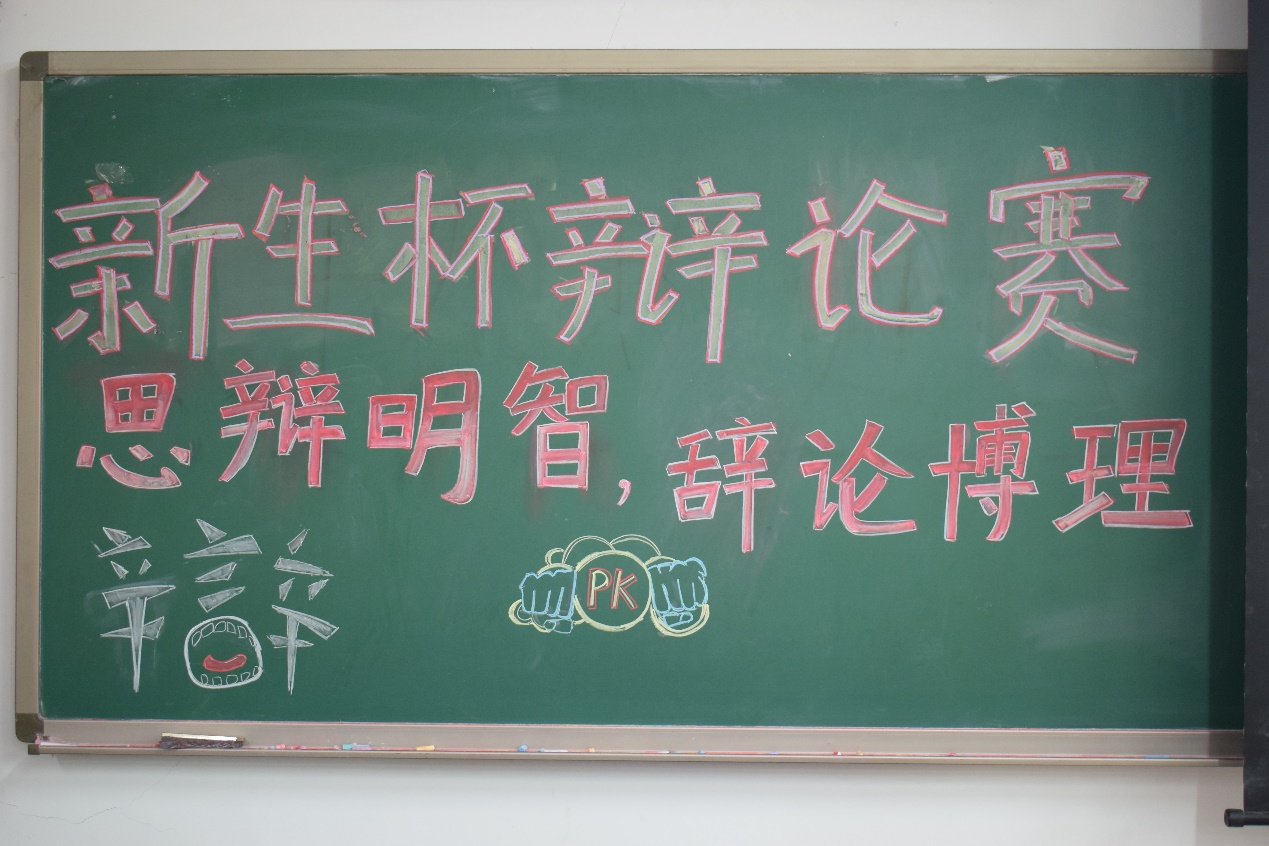 新生杯辩论赛
思辩明智,辞论博理
辯
PK